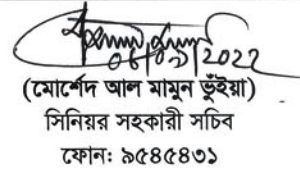 ০৪/০১/2022
(মোর্শেদ আল মামুন ভুঁইয়া)
সিনিয়র সহকারী সচিব
ফোন: ৯৫৪৫৪৩১